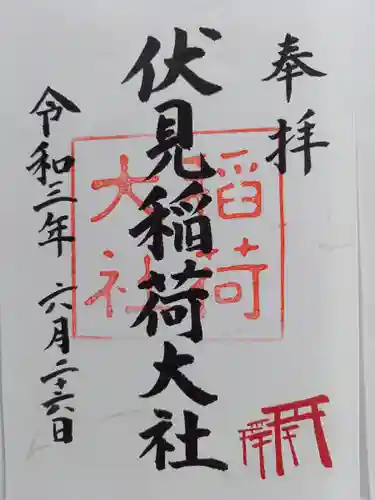 奉拝
伏見稲荷大社
稲荷
大社
令和三年 六月二十六日